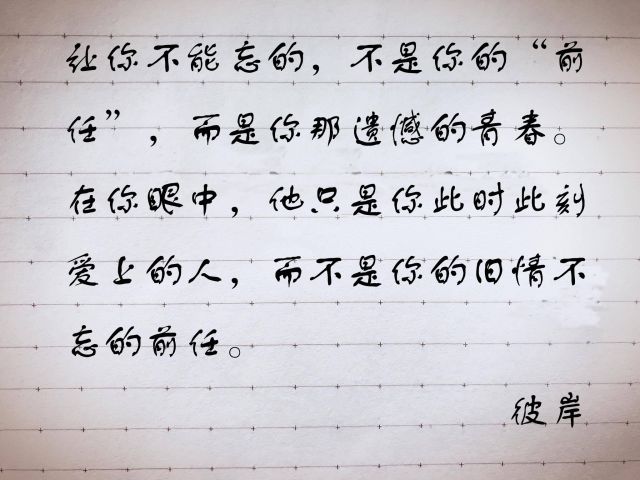 让你不能忘的，不是你的“前
任”，而是你那遗憾的青春。
在你眼中，他只是你此时此刻
爱上的人，而不是你的旧情不
忘的前任。
彼岸